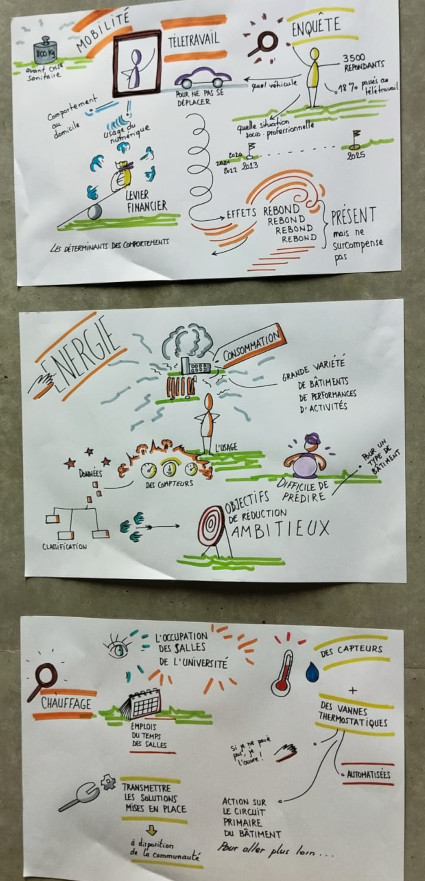 MOBILITÉ
TÉLÉTRAVAIL
ENQUÊTE
avant crise
sanitaire
Comportement
au
domicile
usage du
numérique
POUR NE PAS SE
DÉPLACER
quel véhicule
3500
RÉPONDANTS
18% passés au
télétravail
quelle situation
socio-professionnelle
2020
2022
2013
2025
LEVIER
FINANCIER
LES DÉTERMINANTS DES COMPORTEMENTS
EFFETS REBOND
REBOND
REBOND
REBOND
PRÉSENT
mais ne
surcompense
pas
ÉNERGIE
CONSOMMATION
GRANDE VARIÉTÉ
DE BÂTIMENTS
DE PERFORMANCES
D'ACTIVITÉS
L'USAGE
DONNÉES
DES COMPTEURS
CLASSIFICATION
DIFFICILE DE
PRÉDIRE
POUR UN
TYPE DE
BÂTIMENT
OBJECTIFS
DE RÉDUCTION
AMBITIEUX
CHAUFFAGE
L'OCCUPATION
DES SALLES
DE L'UNIVERSITÉ
EMPLOIS
DU TEMPS
DES SALLES
DES CAPTEURS
+
DES VANNES
THERMOSTATIQUES
AUTOMATISÉES
Si je ne paie
pas, je
l'ouvre!
TRANSMETTRE
LES SOLUTIONS
MISES EN PLACE
à disposition
de la communauté
ACTION SUR
LE CIRCUIT
PRIMAIRE
DU BÂTIMENT
Pour aller plus loin...